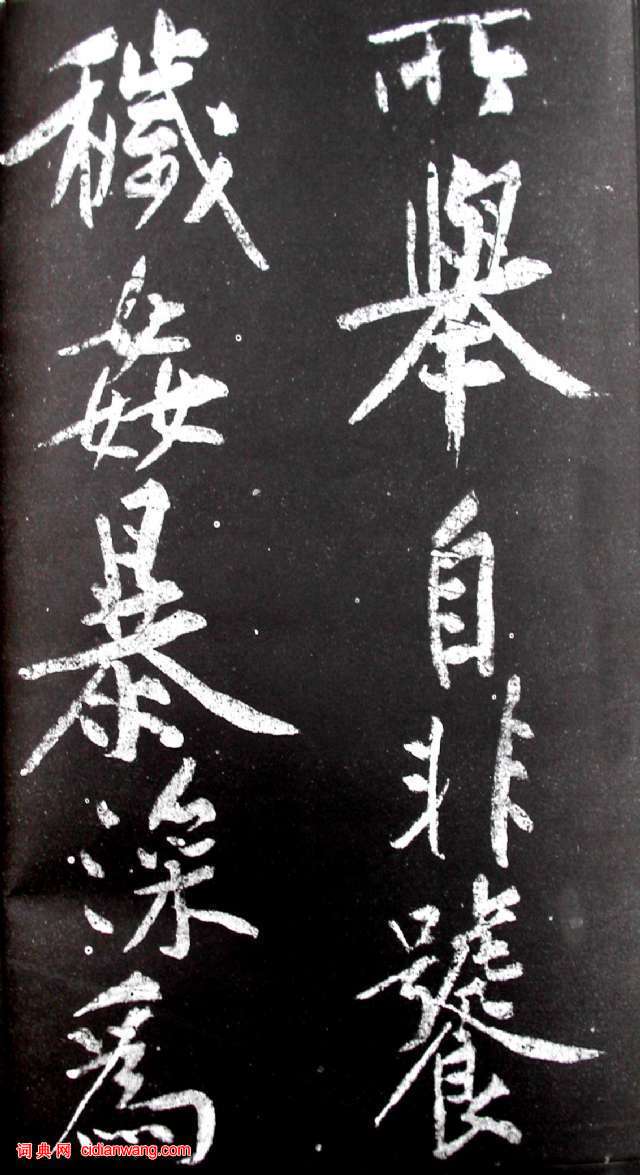 所舉自非饕
穢姦暴深爲
词典网 cidianwang.com